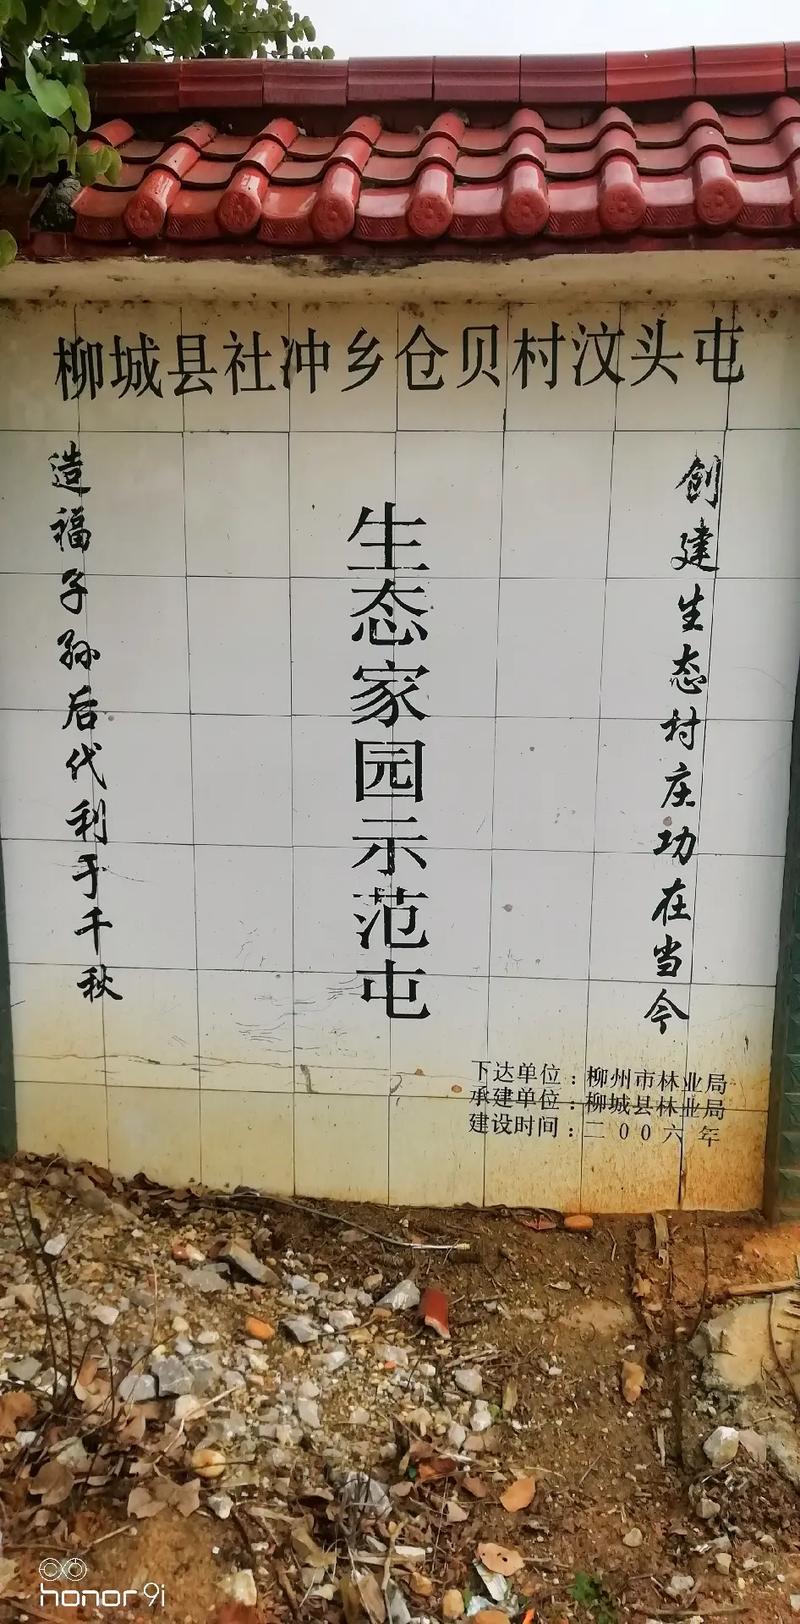 柳城县社冲乡仓贝村汶头屯
创建生态村庄功在当今
生态家园示范屯
造福子孙后代利于千秋
下达单位：柳州市林业局
承建单位：柳城县林业局
建设时间：二00六年
honor 9i